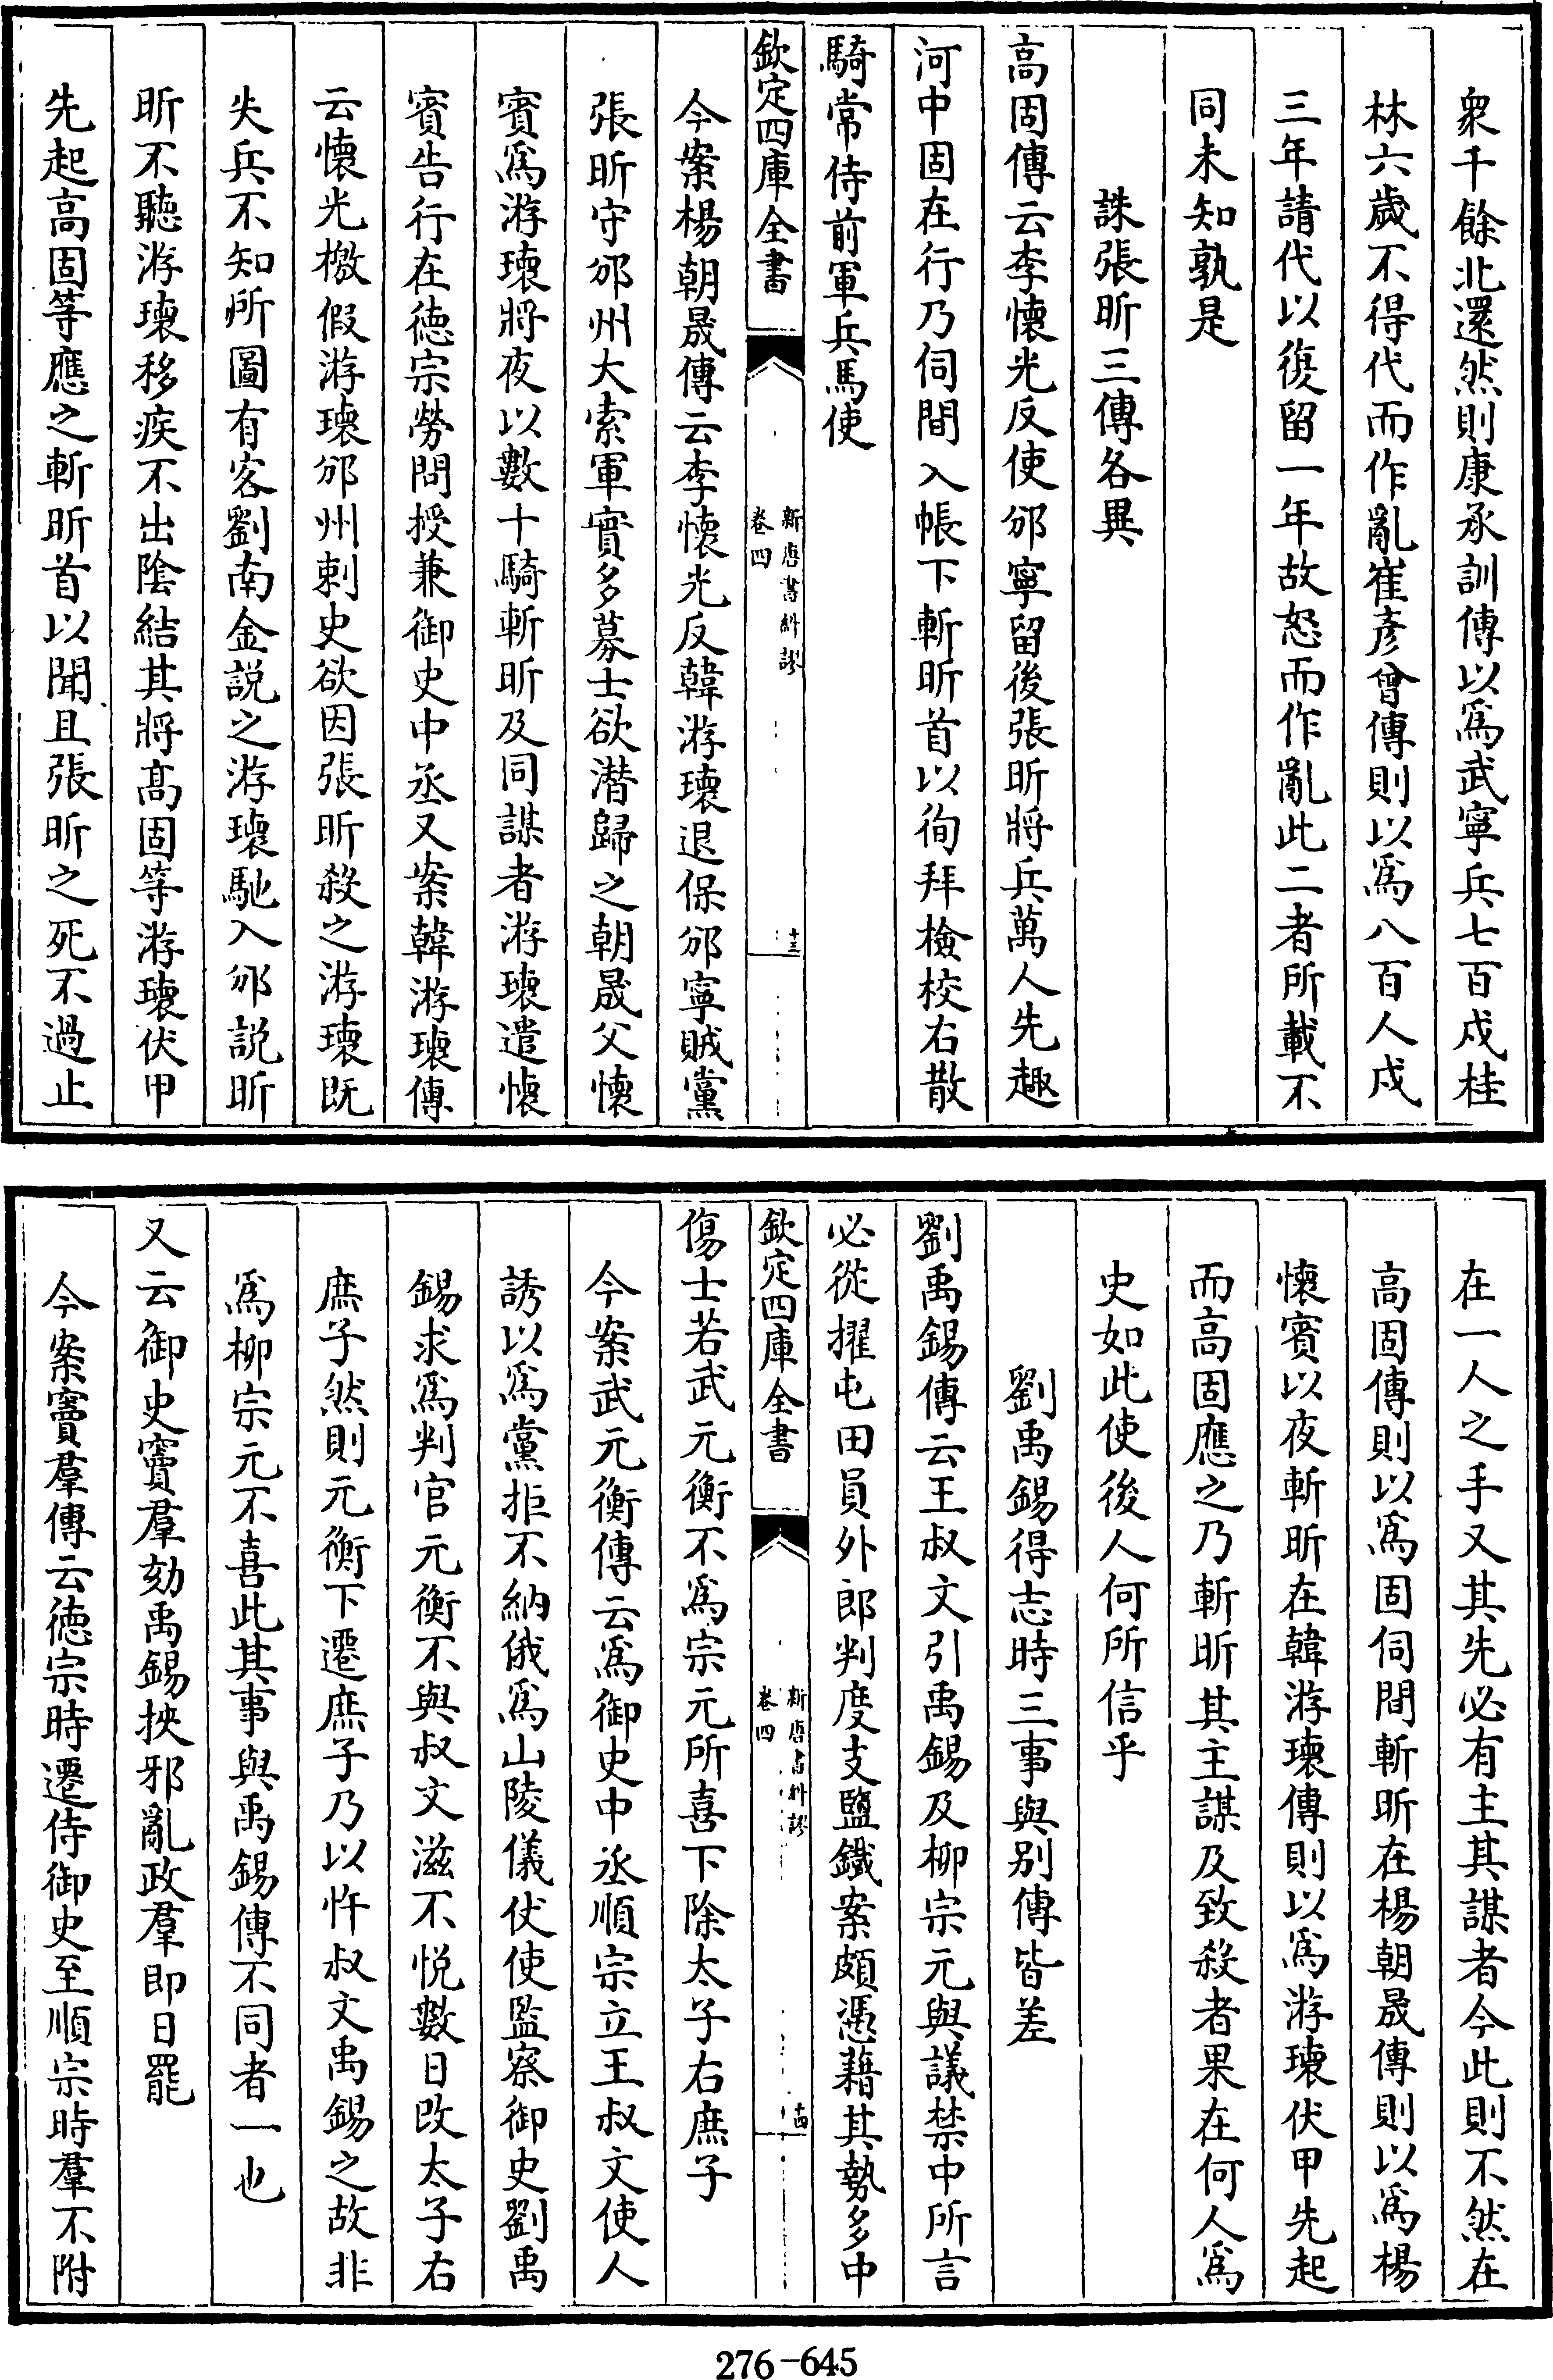 衆千餘北還然則康承訓傳以爲武寧兵七百戍桂
林六歲不得代而作亂崔彥曾傳則以爲八百人戍
三年請代以復留一年故怒而作亂此二者所載不
同未知孰是
誅張昕三傳各異
高固傳云李懷光反使邠寧留後張昕將兵萬人先趣
河中固在行乃伺間入帳下斬昕首以徇拜檢校右散
騎常侍前軍兵馬使
欽定四庫全書
新唐書糾謬
卷四
十三
今案楊朝晟傳云李懷光反韓游瓌退保邠寧賊黨
張昕守邠州大索軍實多募士欲潛歸之朝晟父懷
賓爲游瓌將夜以數十騎斬昕及同謀者游瓌遣懷
賓告行在德宗勞問授兼御史中丞又案韓游瓌傳
云懷光檄假游瓌邠州刺史欲因張昕殺之游瓌既
失兵不知所圖有客劉南金説之游瓌馳入邠説昕
昕不聽游瓌移疾不出陰結其將高固等游瓌伏甲
先起高固等應之斬昕首以聞且張昕之死不過止
在一人之手又其先必有主其謀者今此則不然在
高固傳則以爲固伺間斬昕在楊朝晟傳則以爲楊
懷賓以夜斬昕在韓游瓌傳則以爲游瓌伏甲先起
而高固應之乃斬昕其主謀及致殺者果在何人爲
史如此使後人何所信乎
劉禹錫得志時三事與别傳皆差
劉禹錫傳云王叔文引禹錫及柳宗元與議禁中所言
必從擢屯田員外郎判度支鹽鐵案頗憑藉其勢多中
傷士若武元衡不爲宗元所喜下除太子右庶子
欽定四庫全書
新唐書糾謬
卷四
十四
今案武元衡傳云爲御史中丞順宗立王叔文使人
誘以爲黨拒不納俄爲山陵儀仗使監察御史劉禹
錫求爲判官元衡不與叔文滋不悦數日改太子右
庶子然則元衡下遷庶子乃以忤叔文禹錫之故非
爲柳宗元不喜此其事與禹錫傳不同者一也
又云御史竇羣劾禹錫挾邪亂政羣即日罷
今案竇羣傳云德宗時遷侍御史至順宗時羣不附
276-645